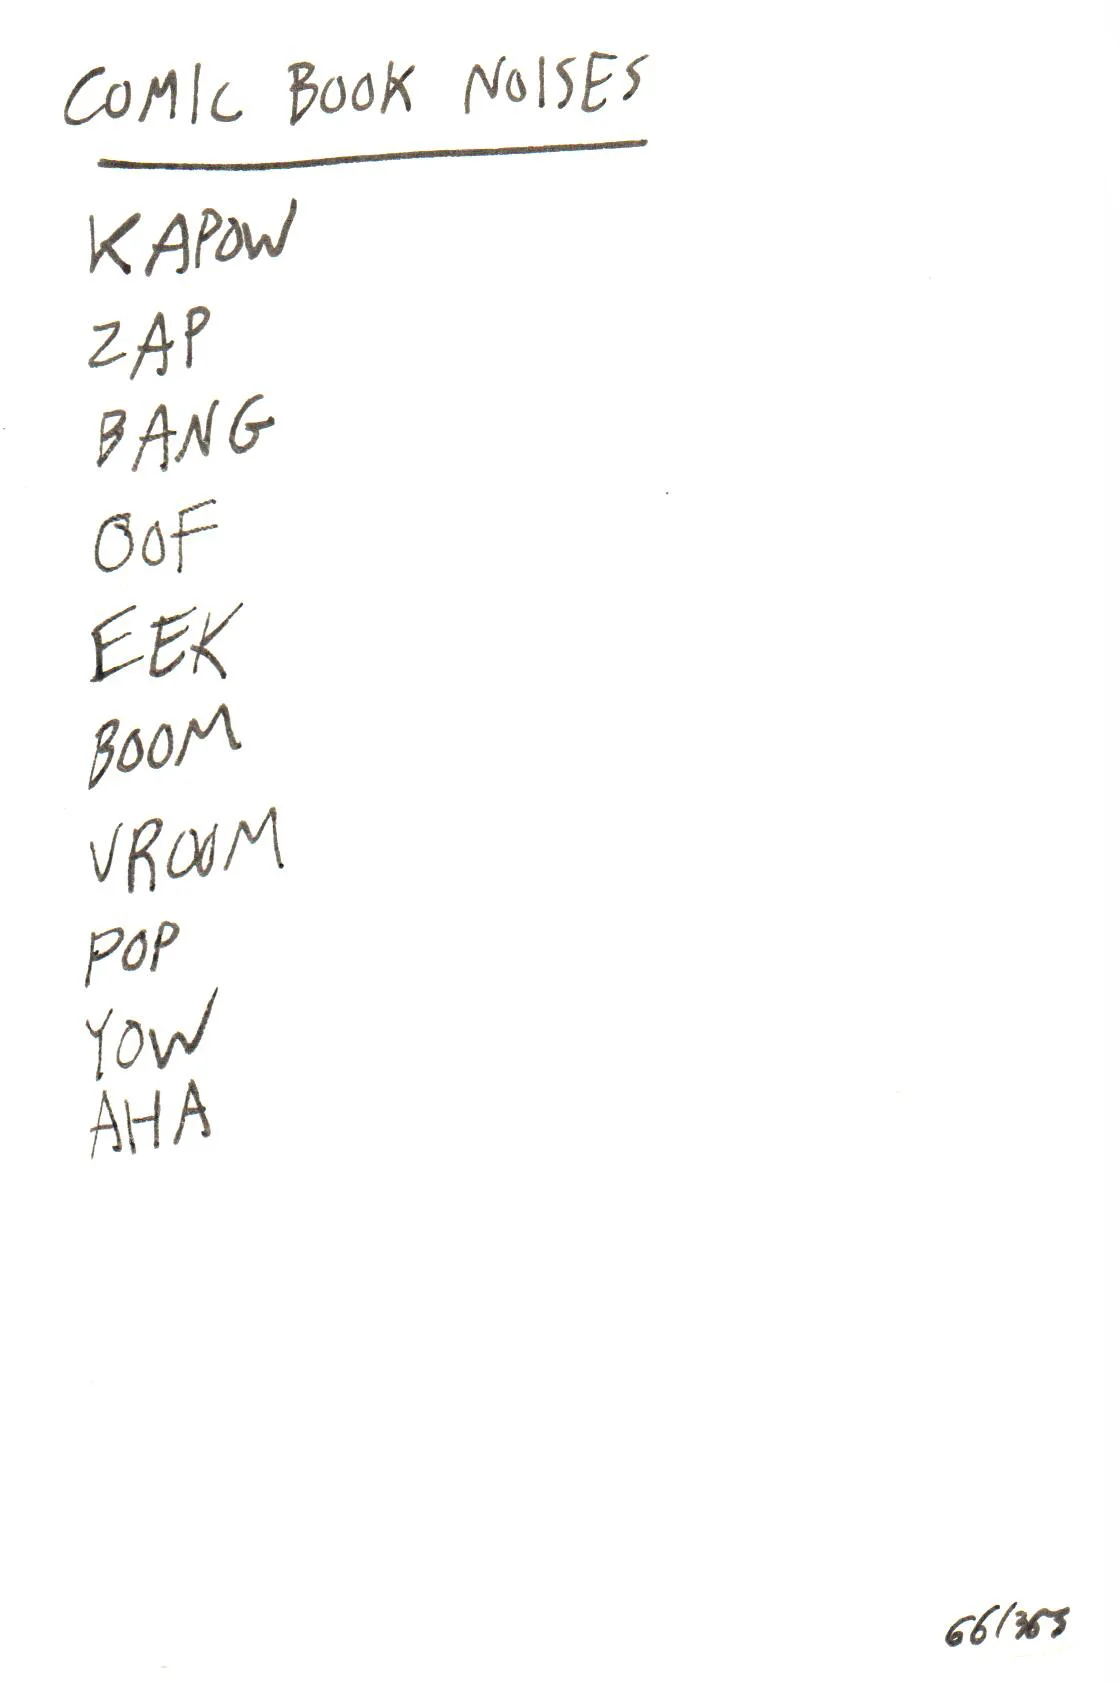 COMIC BOOK NOISES
KAPOW
ZAP
BANG
OOF
EEK
BOOM
VROOM
POP
YOW
AHA
66/365